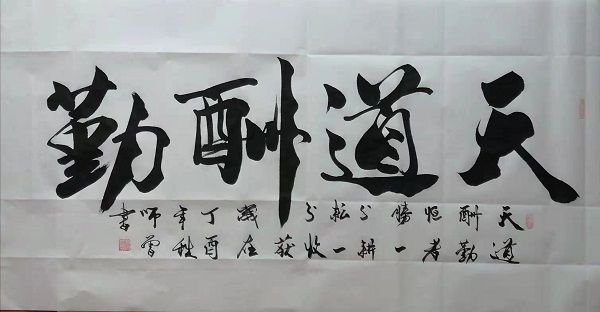 天道酬勤
天道
酬勤
恒者
勝一
分耕
耘一
分收
获
歲在
丁酉
年秋
师曾
書